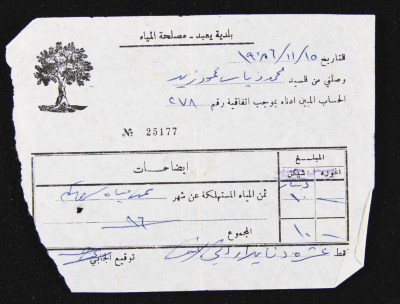 بلدية يعبد - مصلحة المياه
التاريخ ١٩٨٦/١١/١٥
وصلني من السيد محمد ياسر محمود زيد
الحساب المبين ادناه بموجب اتفاقية رقم ٢٧٨
№ 25177
المبلــغ ايضاحات
اغورة شيكل
دينار
١٠ ثمن المياه المستهلكة عن شهر
٩٦
١٠ المجموع
فقط عشرة دنانير توقيع الجابي